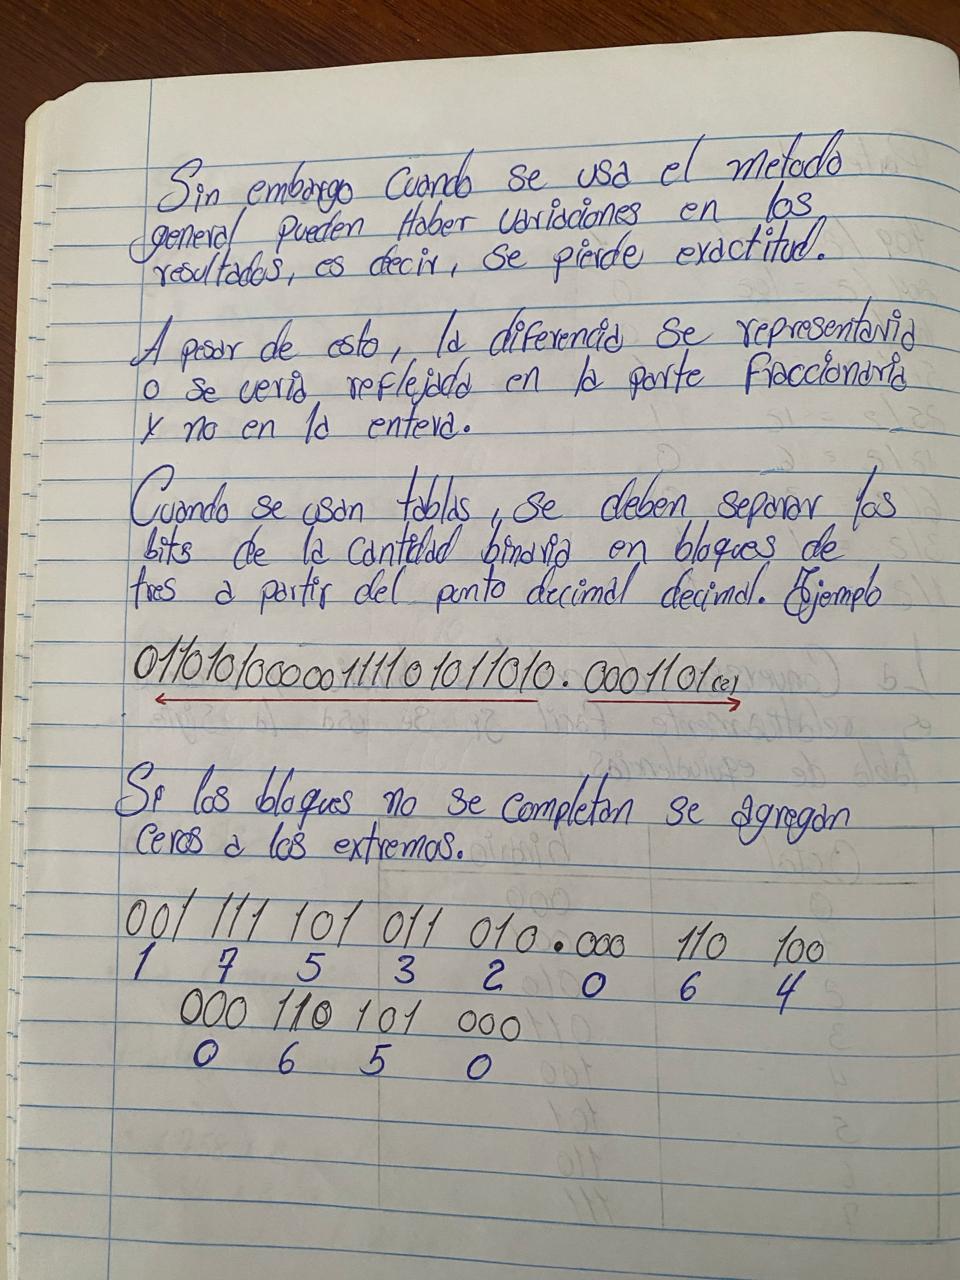 Sin embargo Cuando se usa el metodo
general pueden Haber variaciones en los
resultados, es decir, se pierde exactitud.
A pesar de esto, la diferencia se representaria
o se veria reflejada en la parte fraccionaria
y no en la entera.
Cuando se usan tablas, se deben separar los
bits de la cantidad binaria en bloques de
tres a partir del punto decimal decimal. Ejemplo
Si los bloques no se completan se agregan
Ceros a los extremos.
001 111 101 011 010 . 000 110 100
1 7 5 3 2 0 6 4
000 110 101 000
0 6 5 0